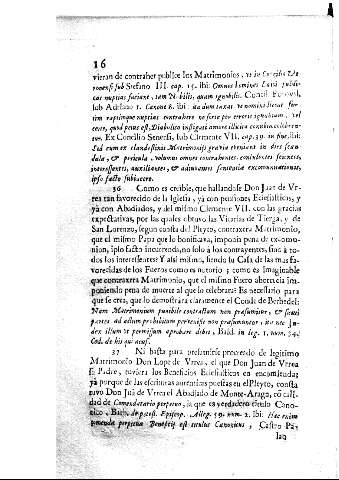 16
vieran de contraher publice los Matrimonios, ut in Concilio La-
ronensi sub Stefano III. cap. 15. ibi: Omnes homines Laici publi-
cas nuptias faciant, tam Nobiles, quam ignobiles. Concil.
sub Adriano I. Canone 8. ibi: ita dum taxat ut nemini liceat fur-
tim raptimque nuptias contrahere
cere, quod peius est, Diabolico instigati amore illicita
re. Ex Concilio Senensi, sub Clemente VII. cap. 39. in fine, ibi:
Sed cum ex clandestinis Matrimonijs gravia eveniant in dies scan-
dala, & pericula, volumus omnes contrahentes,
interessentes, auxiliantes, & adiuvantes sententia excommunicationis,
ipso facto subiacere.
36 Como es creible, que hallandose Don Juan de Vr-
rea tan favorecido de la Iglesia, ya con pensiones Eclesiasticas, y
ya con Abadiados, y del mismo Clemente VII. con las gracias
expectativas, por las quales obtuvo las Vicarias de Tierga, y de
San Lorenzo, segun consta del Pleyto, contraxera Matrimonio,
que el mismo Papa que lo bonificava, imponia pena de excomu-
nion, ipso facto incurrenda, no solo a los contrayentes, sino à to-
dos los interessentes? Y assi mismo, siendo su Casa de las mas fa-
vorecidas de los Fueros como es notorio; como es imaginable
que contraxera Matrimonio, que el mismo Fuero aborrecia im-
poniendo pena de muerte al que lo celebrara? Es necesario para
que se crea, que lo demostrára claramente el Conde de Berbedel:
Nam Matrimonium punibile contractum non præsumitur, & sicut
partes ad actum prohibitum pervenisse non præsumuntur; ita nec Ju-
dex illum ut permissum aprobare debet, Bald. in leg. 1. num. 34.
Cod. de his qui accus.
37 Ni basta para preleminse procreado de legitimo
Matrimonio Don Lope de Vrrea, el que Don Juan de Vrrea
su Padre, tuviera los Beneficios Eclesiasticos en encomienda;
yà porque de las escrituras autenticas puestas en el Pleyto, consta
tuvo Don Juā de Vrrea el Abadiado de Monte-Aragō, cō cali-
dad de Comendatario perpetuo, la que es verdadero titulo Cano-
nico, Barb. de potest. Episcop. Alleg. 59. num. 2. ibi: Hac enim
commenda perpetua Beneficij est titulus Canonicus, Castro Pal.
laq